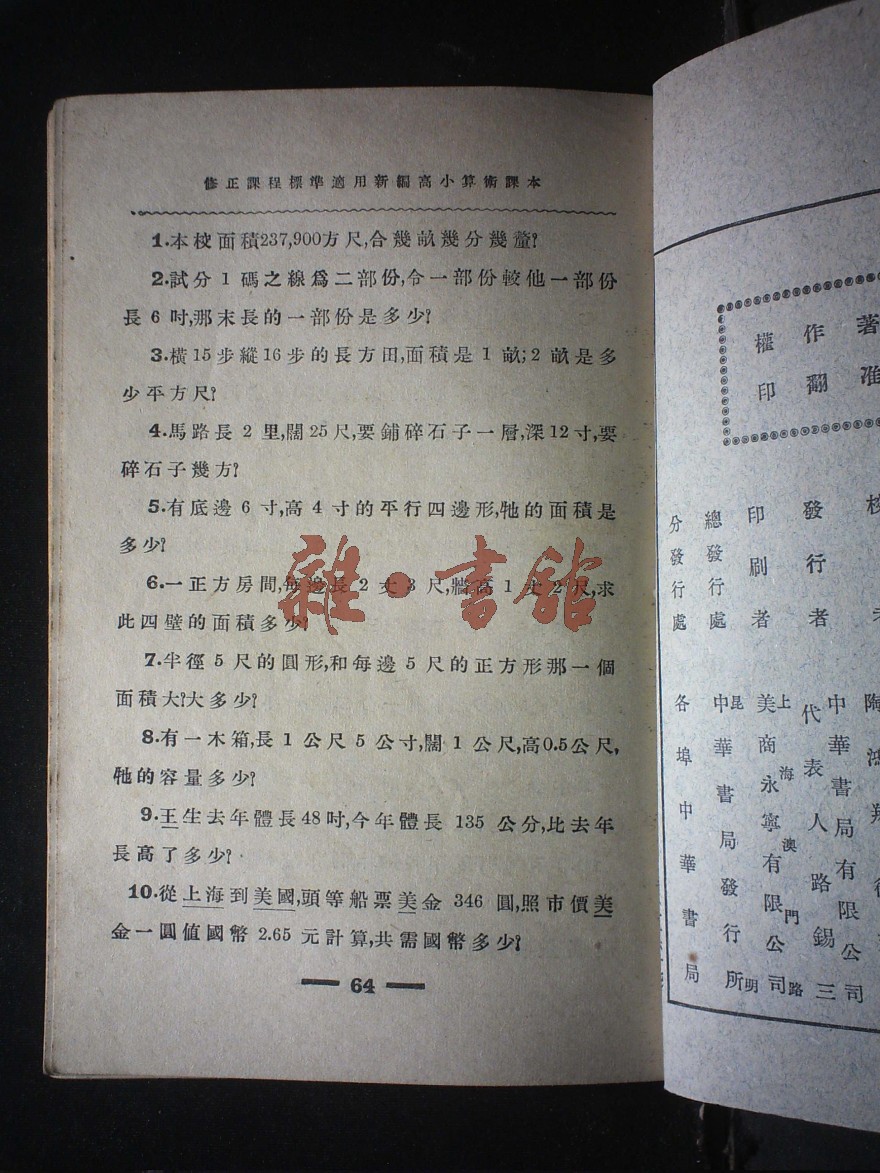 修正課程標準適用新編高小算術課本
1.本校面積237,900方尺,合幾畝幾分幾釐?
2.試分1碼之線爲二部份,令一部份較他一部份
長6吋,那末長的一部份是多少?
3.橫15步縱16步的長方田,面積是1畝;2畝是多
少平方尺?
4.馬路長2里,闊25尺,要鋪碎石子一層,深12寸,要
碎石子幾方?
5.有底邊6寸,高4寸的平行四邊形,牠的面積是
多少?
6.一正方房間,每邊長2丈3尺,牆高1丈2尺,求
此四壁的面積多少?
7.半徑5尺的圓形,和每邊5尺的正方形那一個
面積大?大多少?
8.有一木箱,長1公尺5公寸,闊1公尺,高0.5公尺,
牠的容量多少?
9.王生去年體長48吋,今年體長135公分,比去年
長高了多少?
10.從上海到美國,頭等船票美金346圓,照市價美
金一圓值國幣2.65元計算,共需國幣多少?
64
雜·書館
著
作
權
准
翻
印
校
者
陶鴻翔
發行者
中華書局有限公司
代表人路錫三
印刷者
美商永寧有限公司
上海澳門路
總發行處
昆明
中華書局發行所
分發行處
各埠中華書局